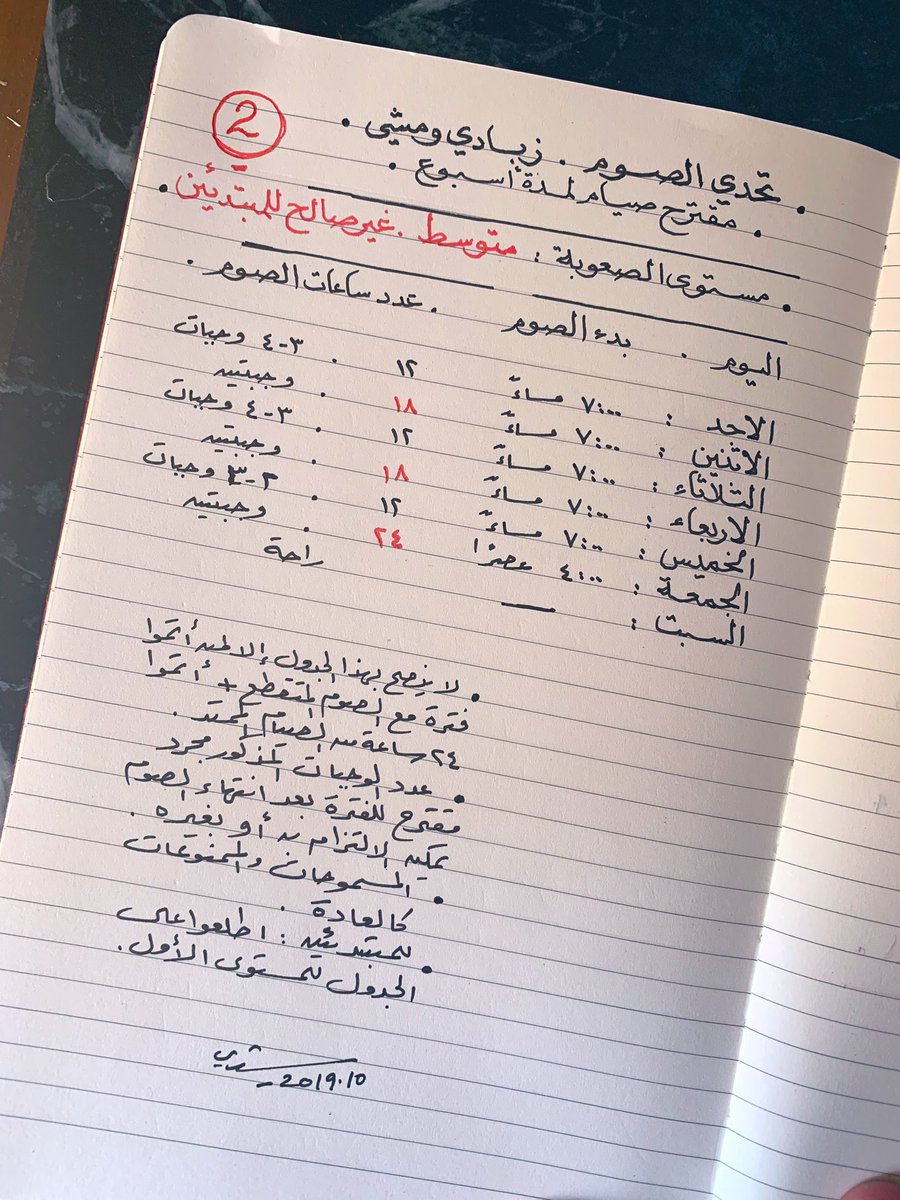 2
• تحدي الصوم . زبادي ومشي .
• مقترح صيام لمدة أسبوع .
• مستوى الصعوبة : متوسط . غير صالح للمبتدئين .
اليوم . بدء الصوم . عدد ساعات الصوم .
الاحد : ٧:٠٠ مساءً ١٢ . ٣-٤ وجبات
الاثنين : ٧:٠٠ مساءً ١٨ . وجبتين
الثلاثاء : ٧:٠٠ مساءً ١٢ . ٣-٤ وجبات
الاربعاء : ٧:٠٠ مساءً ١٨ . وجبتين
الخميس : ٧:٠٠ مساءً ١٢ . ٢-٣ وجبات
الجمعة : ٤:٠٠ عصرًا ٢٤ . وجبتين
السبت : — راحة
• لا ينصح بهذا الجدول إلا لمن أتموا
فترة مع الصوم المتقطع + أتموا
٢٤ ساعة من الصيام الممتد .
• عدد الوجبات المذكور مجرد
مقترح للفترة بعد انتهاء الصوم
يمكن الالتزام به أو بغيره .
• المسموحات والممنوعات
كالعادة .
• للمبتدئين : اطلعوا على
الجدول للمستوى الأول .
2019.10